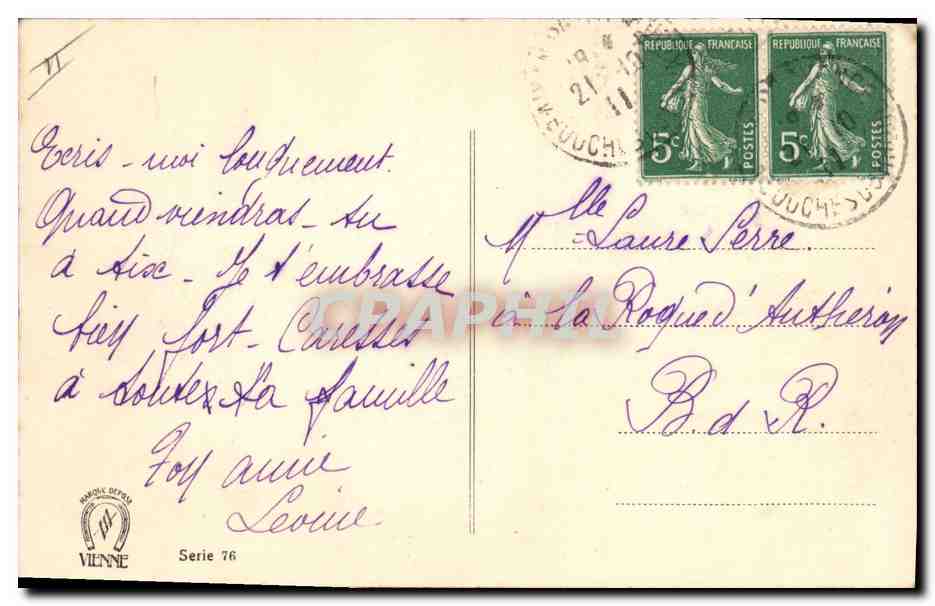 Ecris-moi longuement.
Quand viendras-tu
à Aix. Je t'embrasse
bien fort. Caresses
à toutes ta famille
Ton amie
MARQUE DÉPOSÉ
VIENNE
Serie 76
REPUBLIQUE FRANÇAISE
5c POSTES
REPUBLIQUE FRANÇAISE
5c POSTES
21-10
11
BOUCHES DU
Mlle Laure Serre.
à La Roque d'Anthéron
B. d R.
CPAPHIL